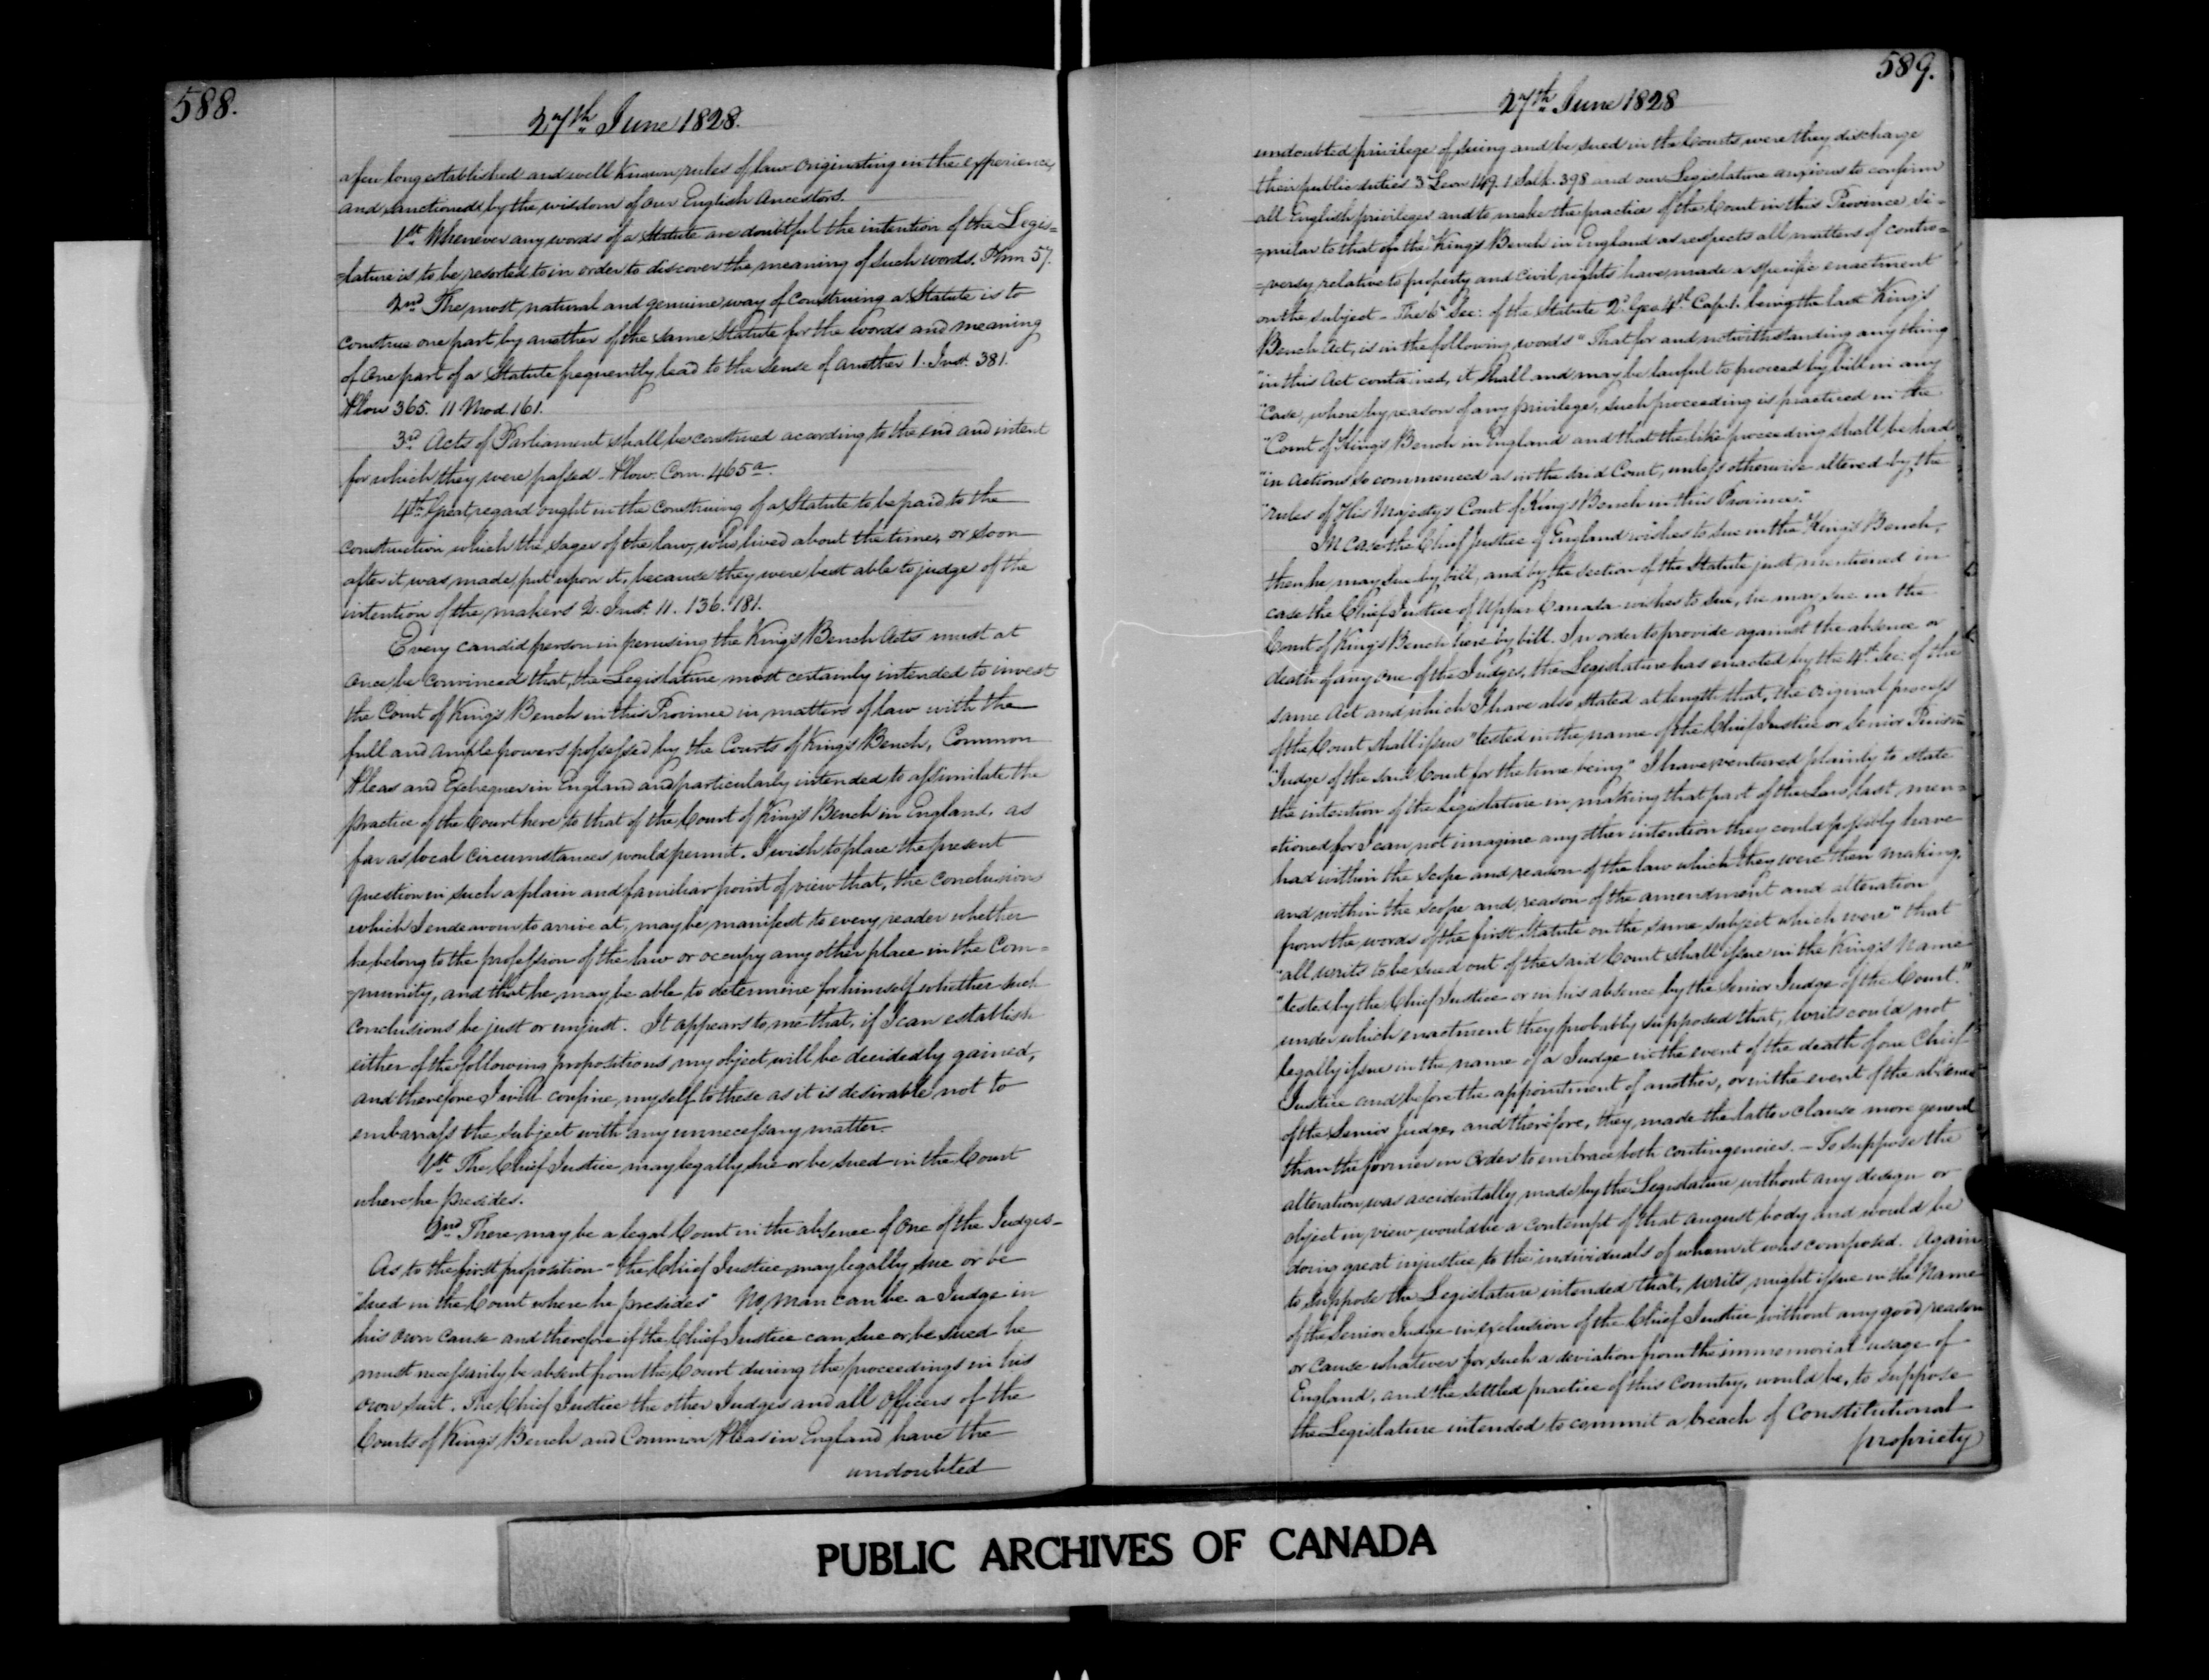 588.
27th June 1828.
a few long established and well known rules of law originating in the experience,
and sanctioned by the wisdom of our English Ancestors.
1st Whenever any words of a Statute are doubtful the intention of the Legis=
=lature is to be resorted to in order to discover the meaning of such words. Plow 57.
2nd The most natural and genuine way of construing a Statute is to
construe one part by another of the same Statute for the words and meaning
of one part of a Statute frequently lead to the sense of another 1. Inst. 381.
Plow 365. 11 Mod. 161.
3rd Acts of Parliament shall be construed acording to the end and intent
for which they were passed - Plow. Com. 465a.
4th Great regard ought in the construing of a Statute to be paid to the
construction which the sages of the law, who lived about the time, or soon
after it was made, put upon it, because they were best able to judge of the
intention of the makers 2. Inst. 11. 136. 181.
Every candid person in perusing the King's Bench Acts must at
once be convinced that, the Legislature most certainly intended to invest
the Court of King's Bench in this Province in matters of law with the
full and ample powers possessed by the Courts of King's Bench, Common
Pleas and Exchequer in England and particularly intended to assimilate the
practice of the Court here to that of the Court of King's Bench in England, as
far as local circumstances would permit. I wish to place the present
question in such a plain and familiar point of view that, the conclusions
which I endeavour to arrive at, may be manifest to every reader whether
he belong to the profession of the law or occupy any other place in the Com=
=munity, and that he may be able to determine for himself whether such
conclusions be just or unjust. It appears to me that, if I can establish
either of the following propositions, my object will be decidedly gained,
and therefore I will confine myself to these as it is desirable not to
embarrass the subject with any unnecessary matter.
1st The Chief Justice may legally sue or be sued in the Court
where he presides.
2nd There may be a legal Court in the absence of one of the Judges -
As to the first proposition "the Chief Justice may legally sue or be
"sued in the Court where he presides" No man can be a Judge in
his own cause and therefore if the Chief Justice can sue or be sued he
must necessarily be absent from the Court during the proceedings in his
own suit. The Chief Justice the other Judges and all Officers of the
Courts of King's Bench and Common Pleas in England have the
undoubted
589.
27th June 1828
undoubted privilege of suing and be sued in the Courts were they discharge
their public duties 3 Leon 149. 1. Salk. 398 and our Legislature anxious to confirm
all English privileges and to make the practice of the Court in this Province si=
=milar to that of the King's Bench in England as respects all matters of contro=
=versy, relative to property and civil rights have made a specific enactment
on the subject - The 6th Sec: of the Statute 2d Geo 4th Cap. 1. being the last King's
Bench Act, is in the following words "That for and notwithstanding any thing
"in this Act contained, it shall and may be lawful to proceed by bill in any
"Case, where by reason of any privilege, such proceeding is practiced in the
"Court of King's Bench in England and that the like proceeding shall be had
"in actions so commenced as in the said Court, unless otherwise altered by the
"rules of His Majesty's Court of King's Bench in this Province."
In case the Chief Justice of England wishes to sue in the King's Bench,
then he may sue by bill, and by the section of the Statute just mentioned in
case the Chief Justice of Upper Canada wishes to sue, he may sue in the
Court of King's Bench here by bill. In order to provide against the absence or
death of any one of the Judges, the Legislature has enacted by the 4th Sec: of the
same Act and which I have also stated at length that, the original process
of the Court shall issue "tested in the name of the Chief Justice or Senior Puisne
"Judge of the said Court for the time being" I have ventured plainly to state
the intention of the Legislature in making that part of the Law last men=
=tioned for I can not imagine any other intention they could possibly have
had within the scope and reason of the law which they were then making,
and within the scope and reason of the amendment and alteration
from the words of the first Statute on the same subject which were "that
"all writs to be sued out of the said Court shall issue in the King's Name
"tested by the Chief Justice or in his absence by the Senior Judge of the Court."
under which enactment they probably supposed that, writs could not
legally issue in the name of a Judge in the event of the death of one Chief
Justice and before the appointment of another, or in the event of the absence
of the Senior Judge, and therefore, they made the latter clause more general
than the former in order to embrace both contingencies. - To suppose the
alteration was accidentally made by the Legislature without any design or
object in view would be a contempt of that august body and would be
doing great injustice to the individuals of whom it was composed. Again
to suppose the Legislature intended that, writs might issue in the Name
of the Senior Judge in exclusion of the Chief Justice without any good reason
or cause whatever for such a deviation from the immemorial usage of
England, and the settled practice of this Country, would be, to suppose
the Legislature intended to commit a breach of Constitutional
propriety
PUBLIC ARCHIVES OF CANADA